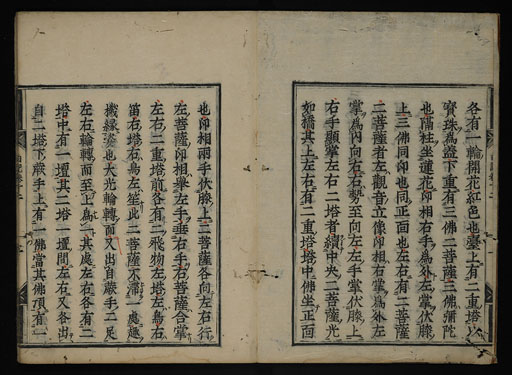 各有一輪開花紅色也臺上有二重塔以
寶珠為蓋下重有三佛二菩薩三佛彌陀
也隔柱坐蓮花印相右手為外左掌伏膝
上三佛同印也同正面也左右有二菩薩
二菩薩者左觀音立像印相右掌為外左
掌為內向右右勢至向左左手掌伏膝上
右手顯掌左右二塔者續中央二菩薩光
如橋其上左右有二重塔塔中佛坐正面
也印相兩手伏膝上二菩薩各向左右行
左菩薩印相舉左手垂右手右菩薩合掌
左右二重塔前各有二飛物左塔左鳥右
笛右塔右鳥左笙此二菩薩不滯一處趣
機緣姿也大光輪轉而又出自蕨手二足
左右輪轉而至上為一其處左右各有二
塔中有一壇其二塔一壇間左右又各出
自二塔下蕨手上有一佛當其佛頂有一